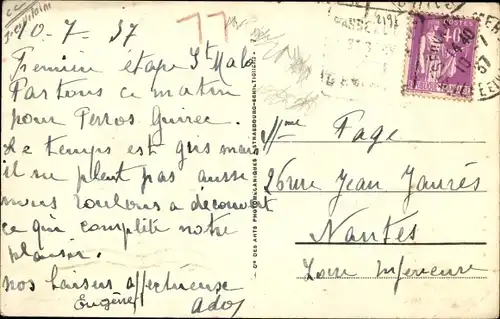 10-7-37
77
Première étape St Malo
Partons ce matin
pour Perros Guirec.
Le temps est gris mais
il ne pleut pas aussi
nous roulons a découvert
ce qui complète notre
plaisir.
nos baisers affectueuse
Eugène
Ado
Cie DES ARTS PHOTOMÉCANIQUES
STRASBOURG-SCHILTIGHEIM
40c
Mme Fage
26 rue Jean Jaurès
Nantes
Loire Inférieure